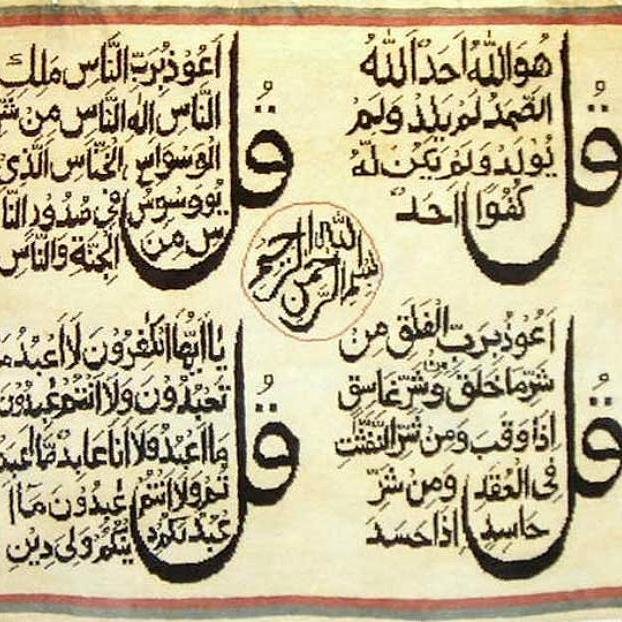 قُل
هُوَ اللّٰهُ اَحَدٌ اَللّٰهُ
الصَّمَدُ لَمْ يَلِدْ وَلَمْ
يُولَدْ وَلَمْ يَكُنْ لَهُ
كُفُوًا اَحَدٌ
قُل
اَعُوذُ بِرَبِّ النَّاسِ مَلِكِ
النَّاسِ اِلٰهِ النَّاسِ مِنْ شَ
الْوَسْوَاسِ الْخَنَّاسِ الَّذِي
يُوَوسْوِسُ فِي صُدُورِ النَّا
سِ مِنَ الْجِنَّةِ وَالنَّاسِ
بسم الله الرحمن الرحيم
قُل
اَعُوذُ بِرَبِّ الْفَلَقِ مِنْ
شَرِّ مَا خَلَقَ وَمِنْ شَرِّ غَاسِقٍ
اِذَا وَقَبَ وَمِنْ شَرِّ النَّفّٰثٰتِ
فِى الْعُقَدِ وَمِنْ شَرِّ
حَاسِدٍ اِذَا حَسَدَ
قُل
يَا اَيُّهَا الْكٰفِرُونَ لَا اَعْبُدُ مَ
تَعْبُدُونَ وَلَا اَنْتُمْ عٰبِدُونَ
مَا اَعْبُدُ وَلَا اَنَا عَابِدٌ مَّا عَبَد
تُمْ وَلَا اَنْتُمْ عٰبِدُونَ مَا ا
عْبُدُ لَكُمْ دِ يْنُكُمْ وَلِيَ دِيْنِ